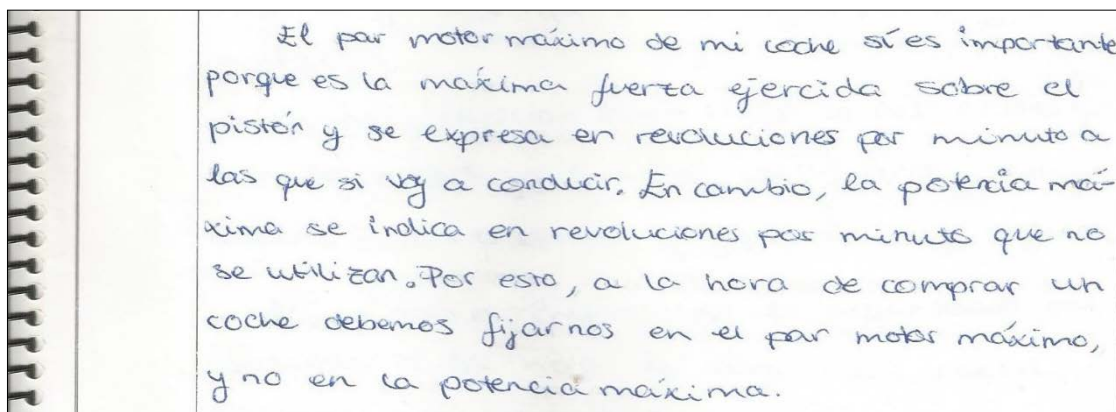 El par motor máximo de mi coche sí es importante
porque es la máxima fuerza ejercida sobre el
pistón y se expresa en revoluciones por minuto a
las que si voy a conducir. En cambio, la potencia má-
xima se indica en revoluciones por minuto que no
se utilizan. Por esto, a la hora de comprar un
coche debemos fijarnos en el par motor máximo,
y no en la potencia máxima.